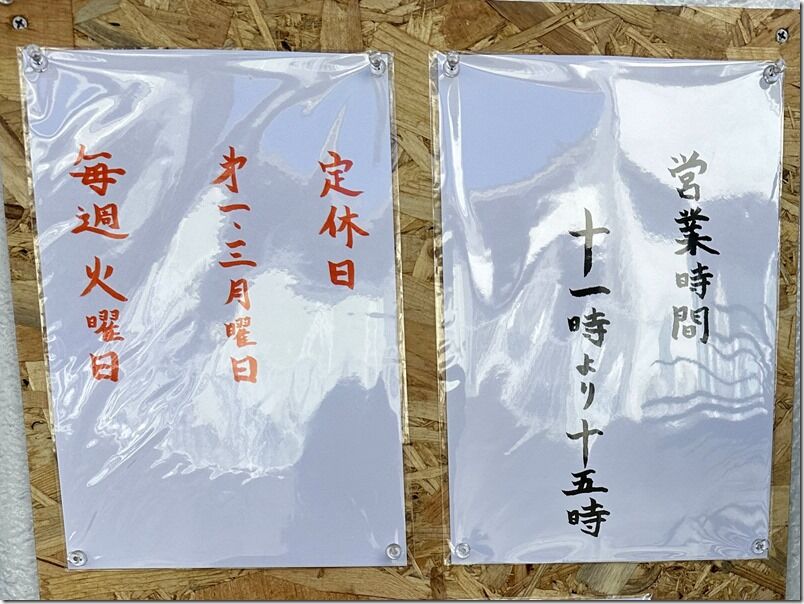 営業時間
十一時より十五時
定休日
才一、三月曜日
毎週火曜日